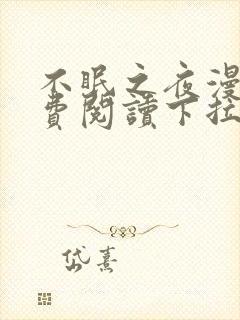 不眠之夜漫
費閱讀下拉
岱熹